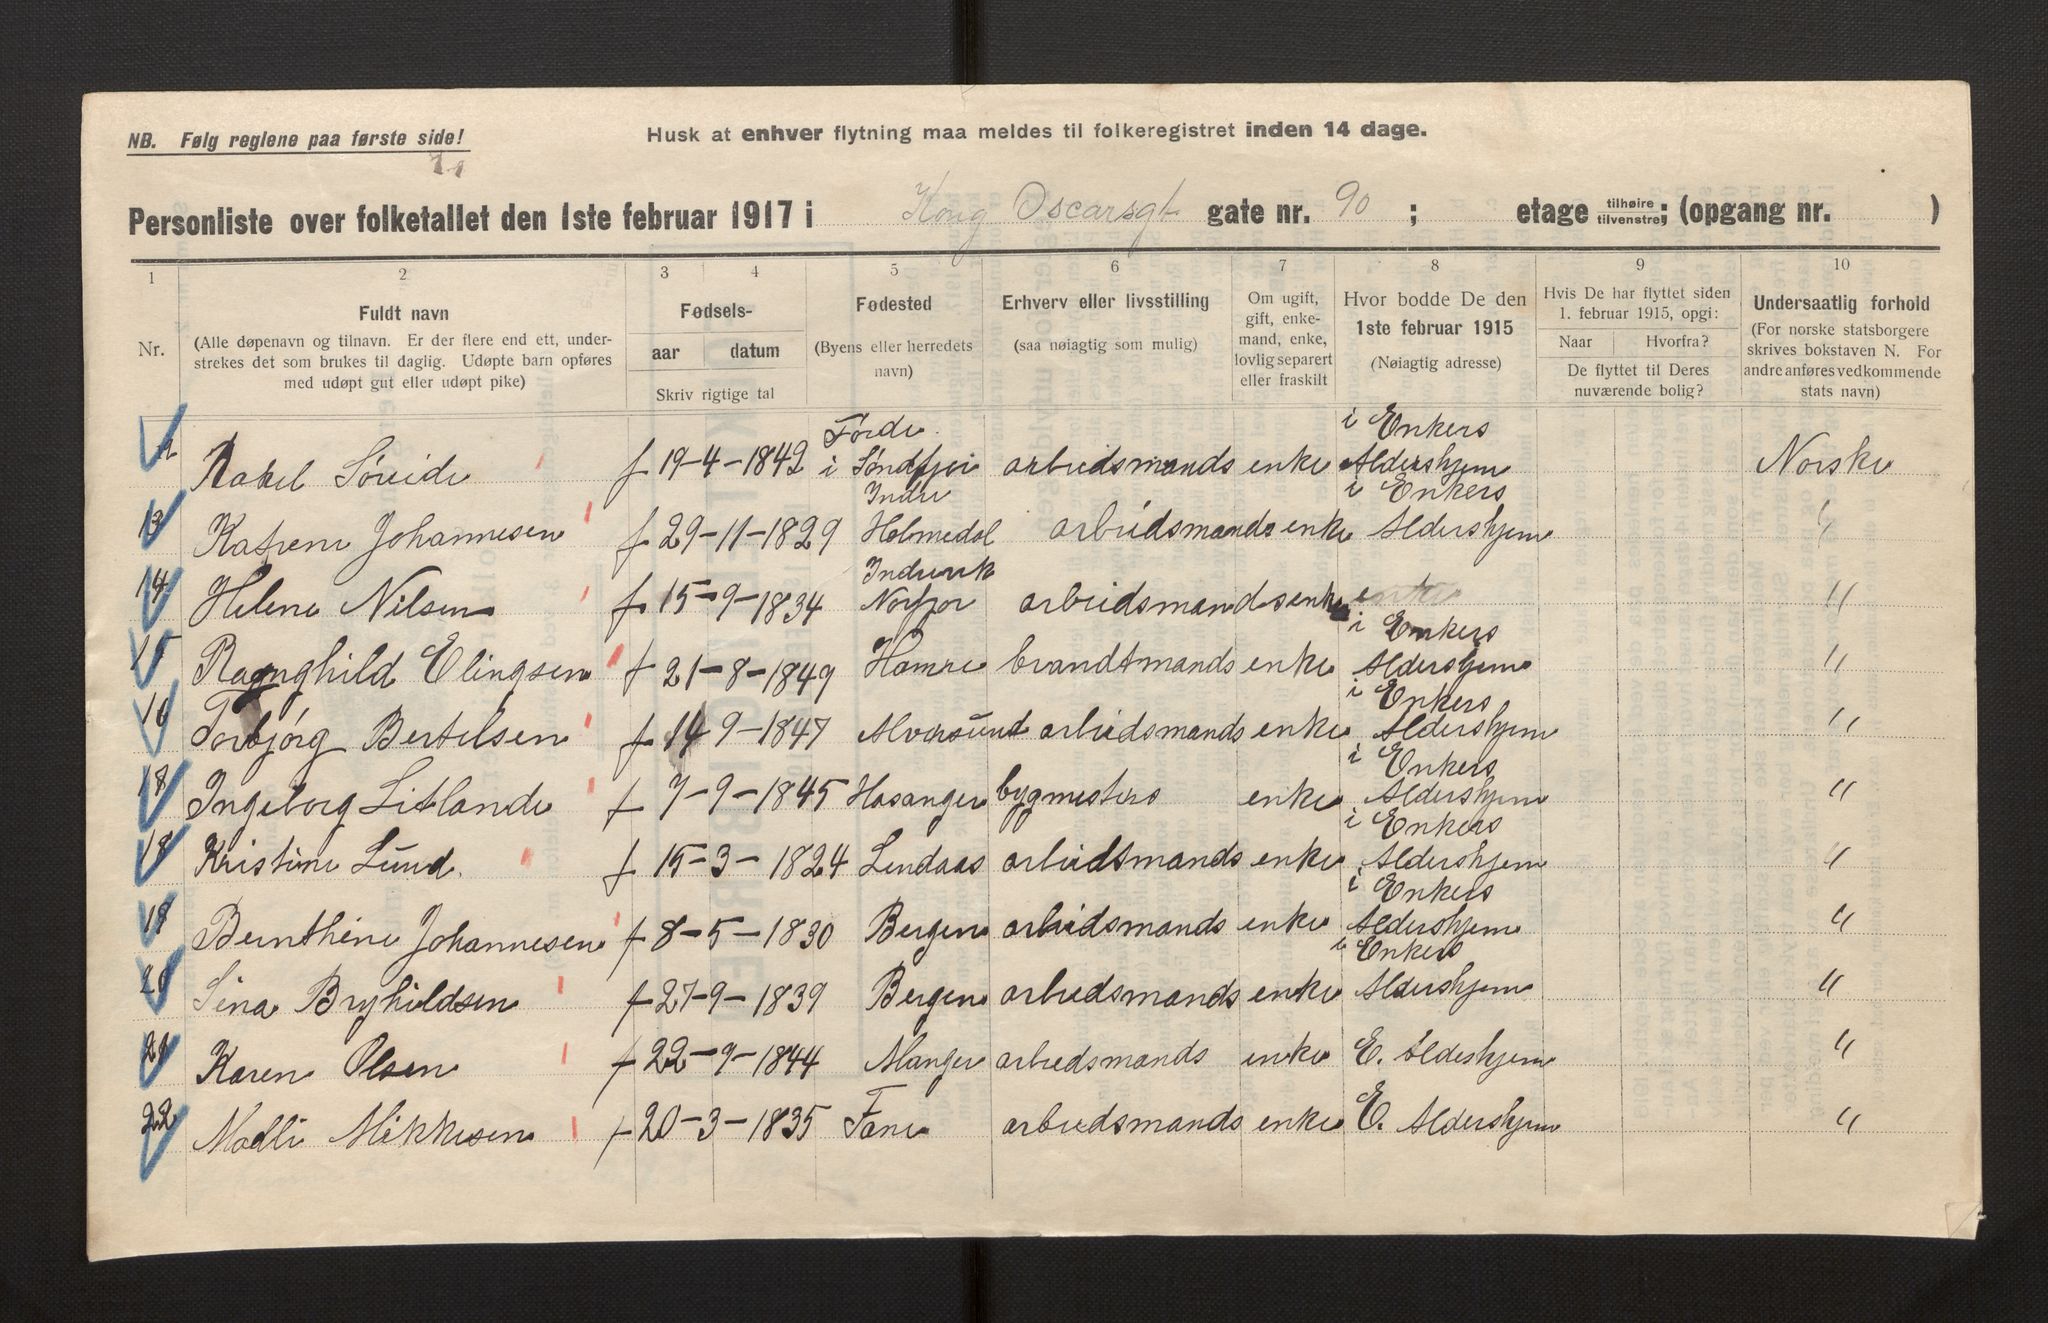 NB. Følg reglene paa første side!
Husk at enhver flytning maa meldes til folkeregistret inden 14 dage.
Personliste over folketallet den 1ste februar 1917 i Kong Oscarsgt gate nr. 90 ; etage tilhøire tilvenstre; (opgang nr. )
1 2 3 4 5 6 7 8 9 10
Nr.
Fuldt navn
(Alle døpenavn og tilnavn. Er der flere end ett, under-
strekes det som brukes til daglig. Udøpte barn opføres
med udøpt gut eller udøpt pike)
Fødsels-
aar datum
Skriv rigtige tal
Fødested
(Byens eller herredets
navn)
Erhverv eller livsstilling
(saa nøiagtig som mulig)
Om ugift,
gift, enke-
mand, enke,
lovlig separert
eller fraskilt
Hvor bodde De den
1ste februar 1915
(Nøiagtig adresse)
Hvis De har flyttet siden
1. februar 1915, opgi:
Naar Hvorfra?
De flyttet til Deres
nuværende bolig?
Undersaatlig forhold
(For norske statsborgere
skrives bokstaven N. For
andre anføres vedkommende
stats navn)
Førde i Enkers
Rakel Søreide f 19-4-1842 i Søndfjor arbeidsmands enke Aldershjem Norske
Indre i Enkers
13 Katrene Johannesen f 29-11-1829 Holmedal arbeidsmands enke Aldershjem "
Indrevik
14 Helene Nilsen f 15-9-1834 Norfjor arbeidsmands enke "
i Enkers
15 Ragnghild Elingsen f 21-8-1849 Hamre brandtmands enke Aldershjem "
i Enkers
16 Torbjørg Bertelsen f 14 9-1847 Alversund arbeidsmands enke Aldershjem "
i Enkers
18 Ingeborg Litlande f 7-9-1845 Hosanger bygmesters enke Aldershjem "
i Enkers
18 Kristine Lund. f 15-3-1824 Lendaas arbeidtsmands enke Aldershjem "
i Enkers
19 Bernthine Johannesen f 8-5-1830 Bergen arbeidsmands enke Aldershjem "
i Enkers
20 Sina Bryhildsen f 27-9-1839 Bergen arbeidsmands enke Aldershjem "
21 Karen Olsen f 22-9-1844 Manger arbeidsmands enke E. Aldeshjem "
22 Madli Mikkesen f 20-3-1835 Fane arbeidsmands enke E. Aldershjem "